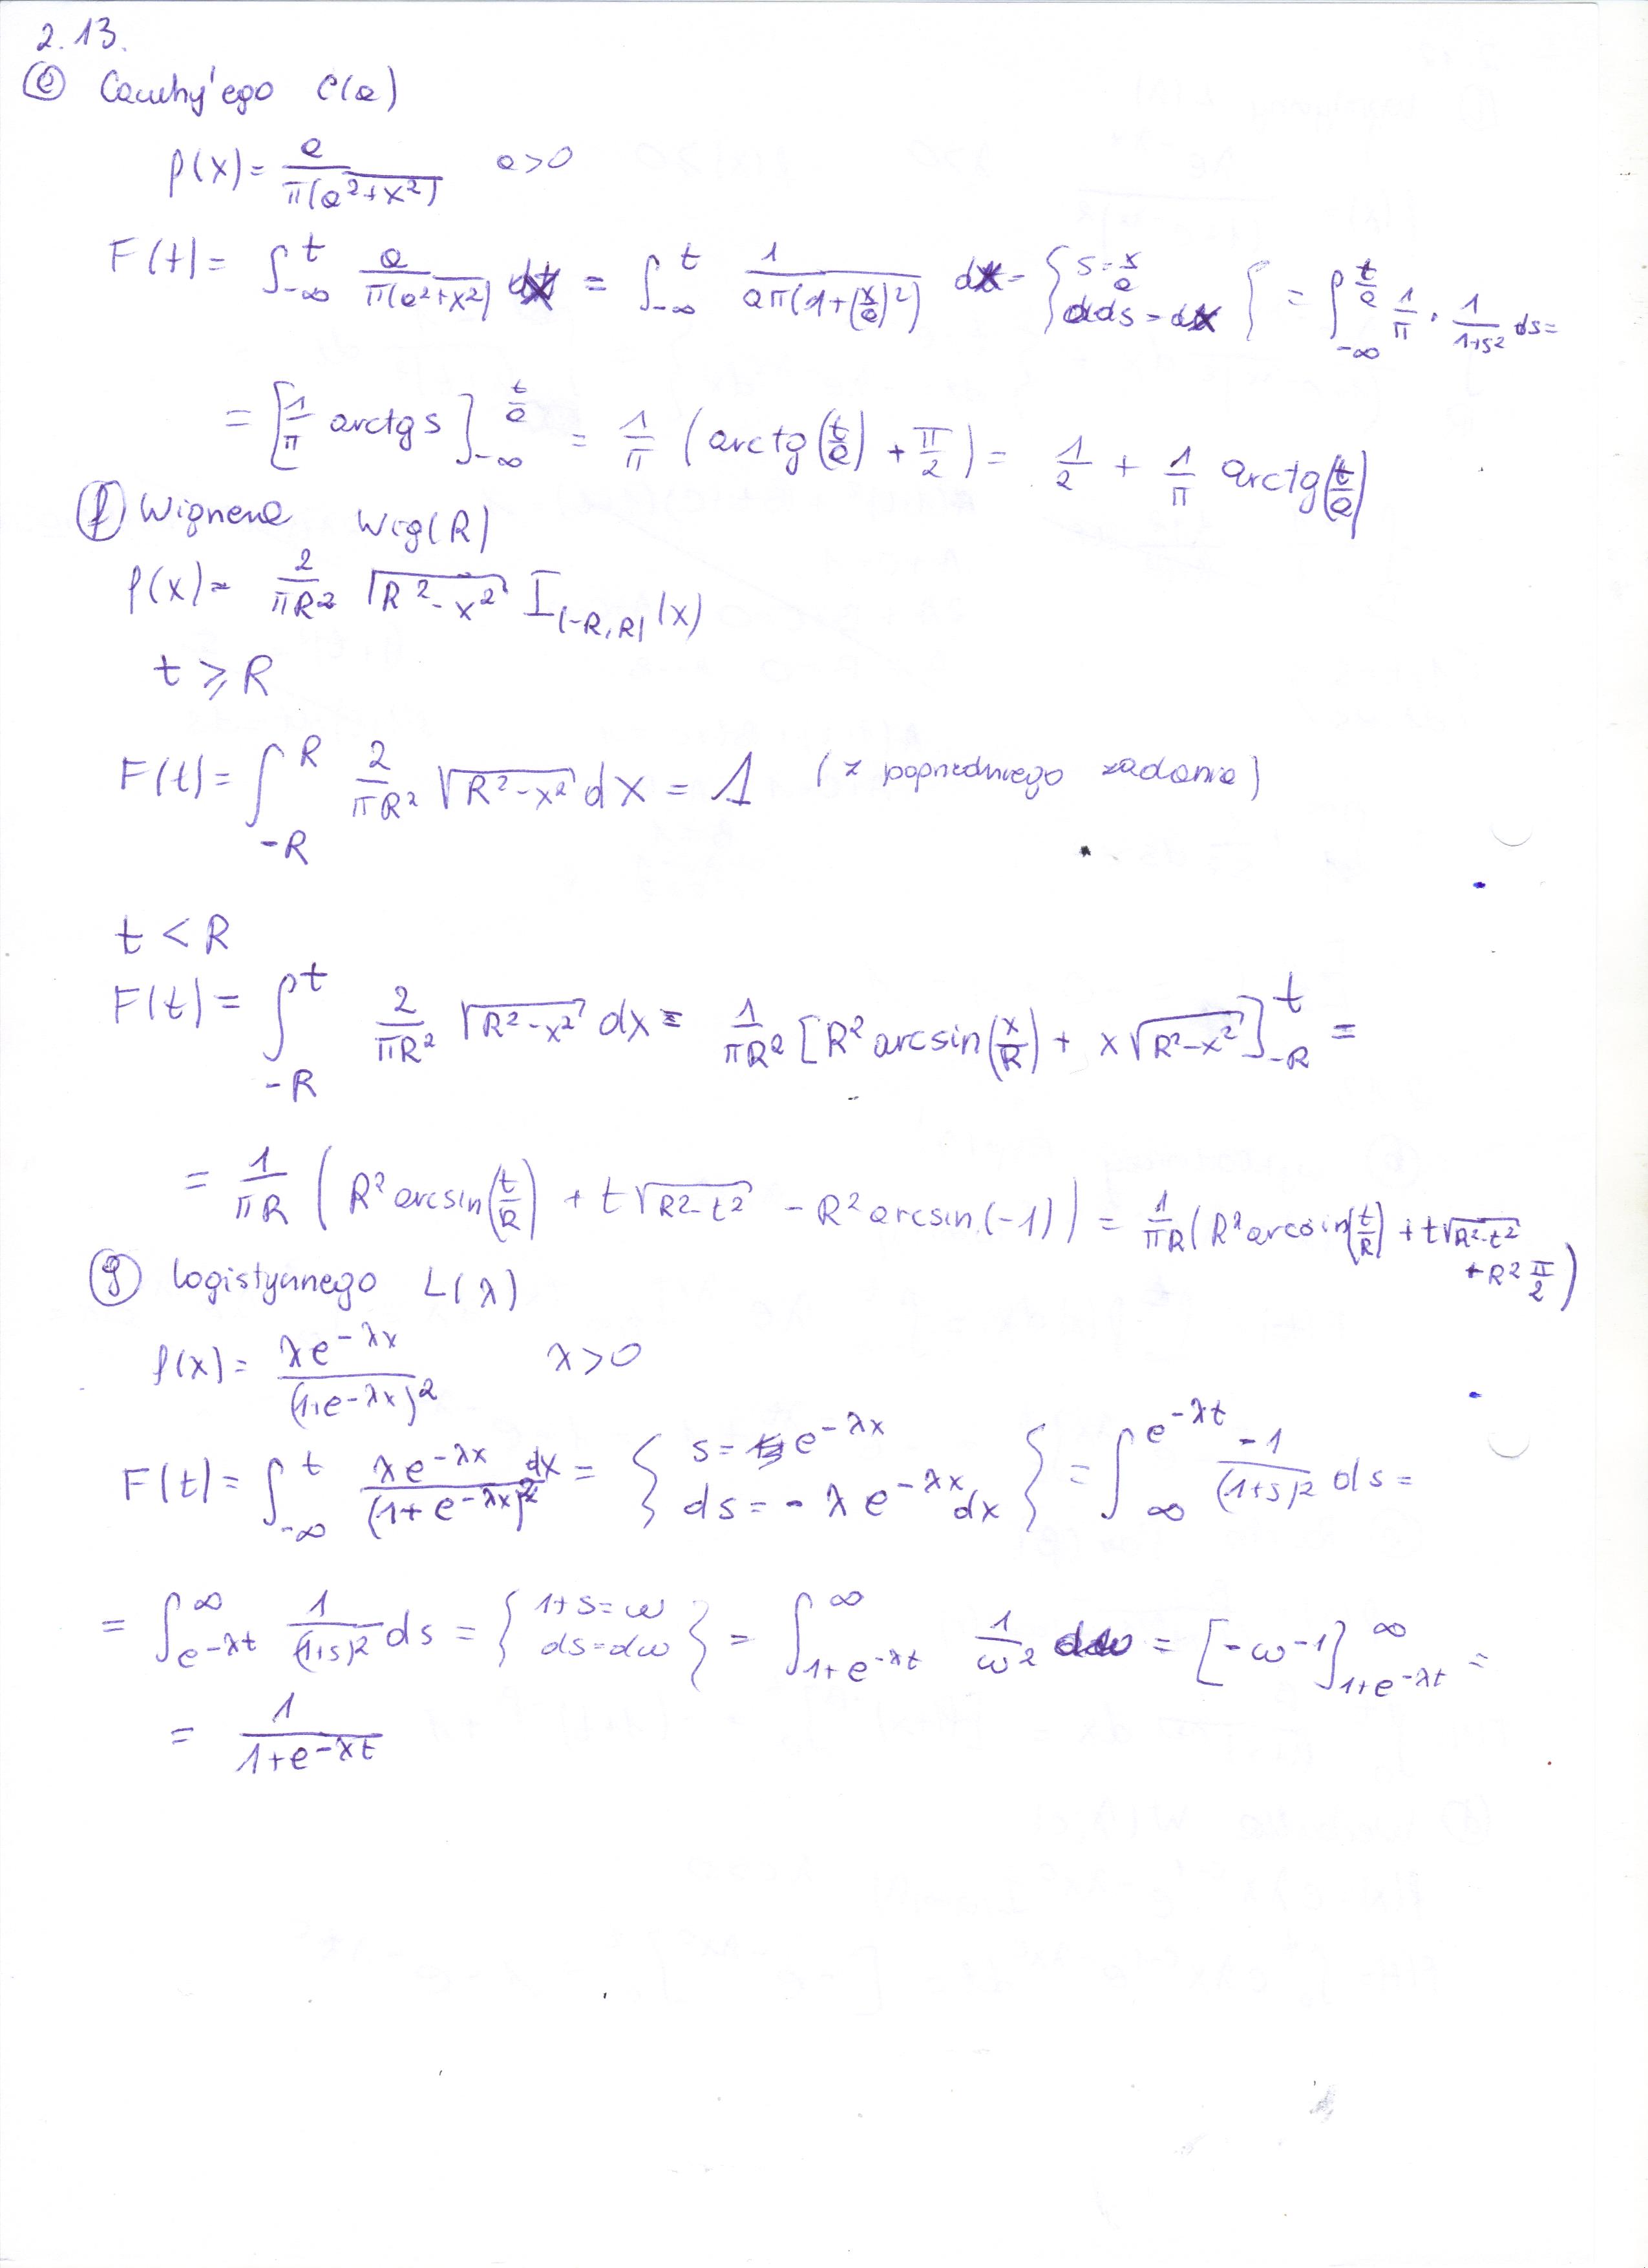 2.13.
(e) Cauchy'ego C(a)
f(x) = a / π(a²+x²)   a>0
F(t) = ∫_{-∞}^{t} a / π(a²+x²) dx = ∫_{-∞}^{t} 1 / aπ(1+(x/a)²) dx = { s = x/a   ads = dx } = ∫_{-∞}^{t/a} 1/π · 1/(1+s²) ds =
= [1/π arctg s]_{-∞}^{t/a} = 1/π (arctg(t/a) + π/2) = 1/2 + 1/π arctg(t/a)
(f) Wignera Wig(R)
f(x) = 2/πR² √(R²-x²) I_{(-R,R)}(x)
t ⩾ R
F(t) = ∫_{-R}^{R} 2/πR² √(R²-x²) dx = 1 (z poprzedniego zadania)
t < R
F(t) = ∫_{-R}^{t} 2/πR² √(R²-x²) dx = 1/πR² [R² arcsin(x/R) + x√(R²-x²)]_{-R}^{t} =
= 1/πR (R² arcsin(t/R) + t√(R²-t²) - R² arcsin(-1)) = 1/πR (R² arcsin(t/R) + t√(R²-t²)
+ R² π/2)
(g) logistycznego L(λ)
f(x) = λe^{-λx} / (1+e^{-λx})²   λ>0
F(t) = ∫_{-∞}^{t} λe^{-λx} / (1+e^{-λx})² dx = { s = e^{-λx}   ds = -λe^{-λx} dx } = ∫_{∞}^{e^{-λt}} -1/(1+s)² ds =
= ∫_{e^{-λt}}^{∞} 1/(1+s)² ds = { 1+s = ω   ds = dω } = ∫_{1+e^{-λt}}^{∞} 1/ω² dω = [-ω^{-1}]_{1+e^{-λt}}^{∞} =
= 1 / (1+e^{-λt})